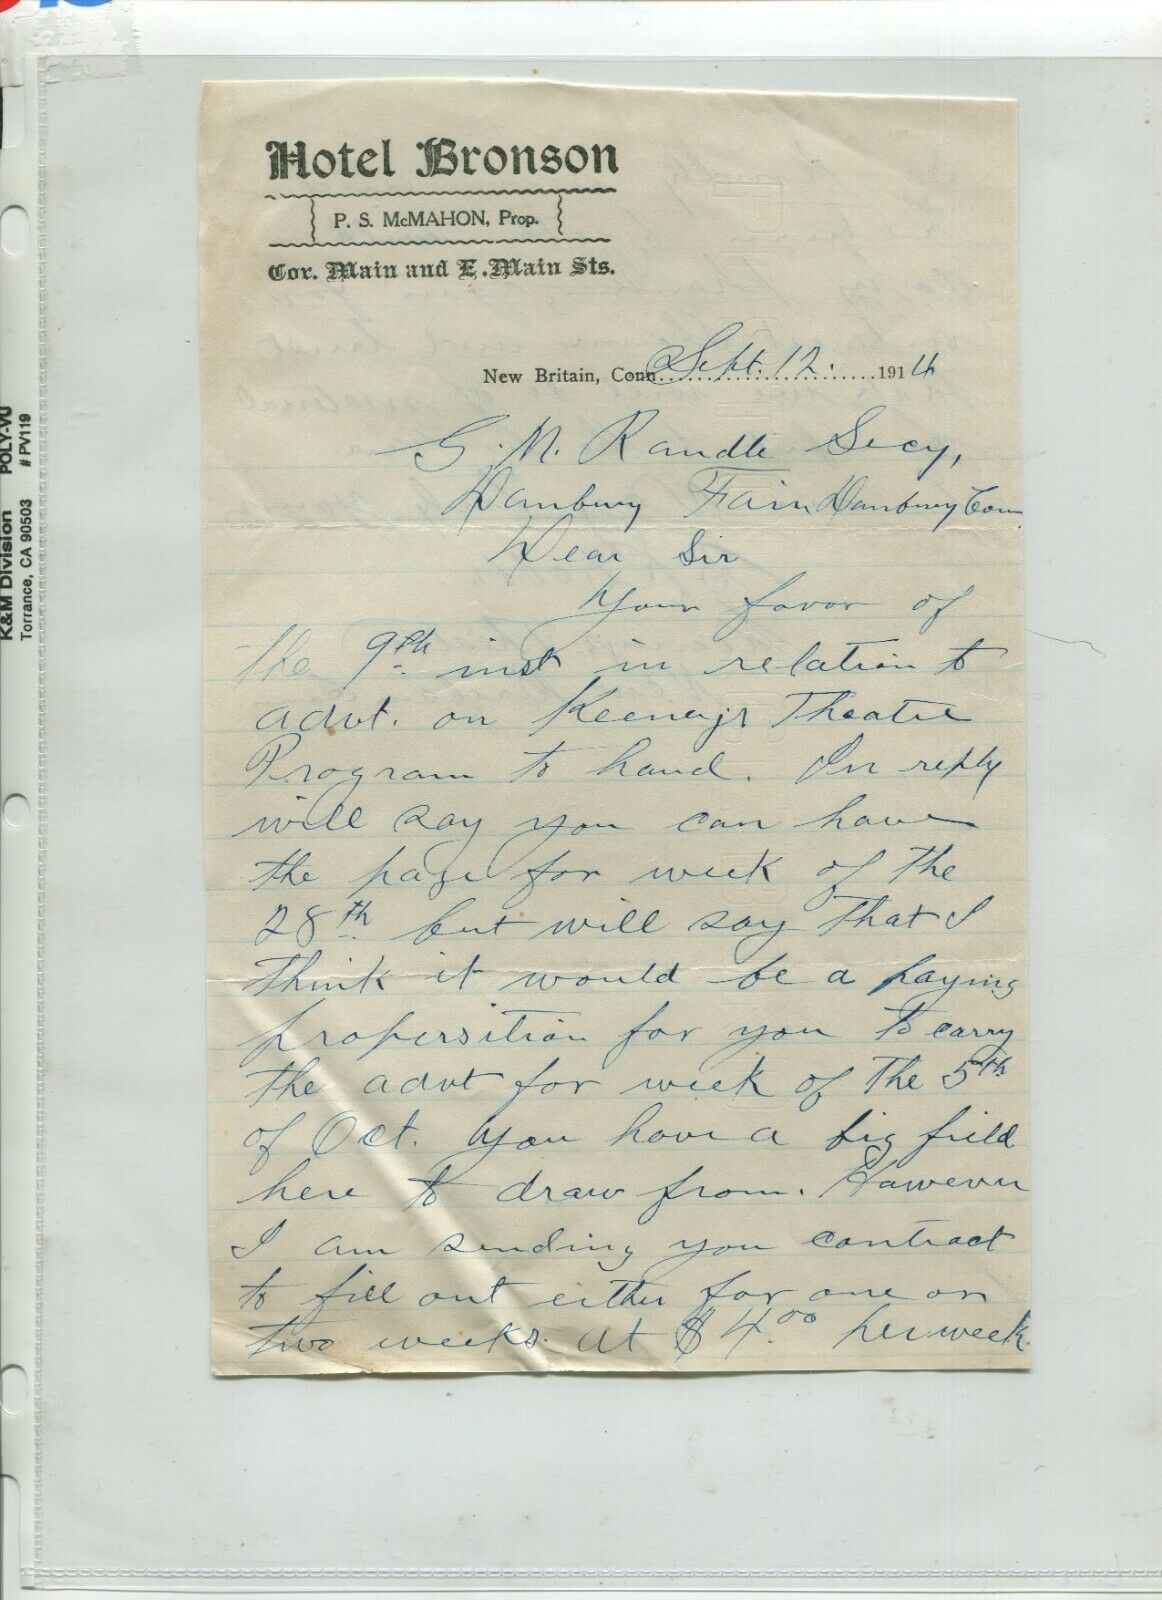 Hotel Bronson
P. S. McMAHON, Prop.
Cor. Main and E. Main Sts.
New Britain, Conn. Sept. 12. 1914
G. M. Randle Secy,
Danbury Fair Danbury Conn
Dear Sir
Your favor of
the 9th inst in relation to
advt. on Keeney's Theatre
Program to hand. In reply
will say you can have
the page for week of the
28th but will say that I
think it would be a paying
propersition for you to carry
the advt for week of the 5th
of Oct. You have a big field
here to draw from. However
I am sending you contract
to fill out either for one or
two weeks. at $4.00 per week.
K&M Division POLY-VU
Torrance, CA 90503 # PV119